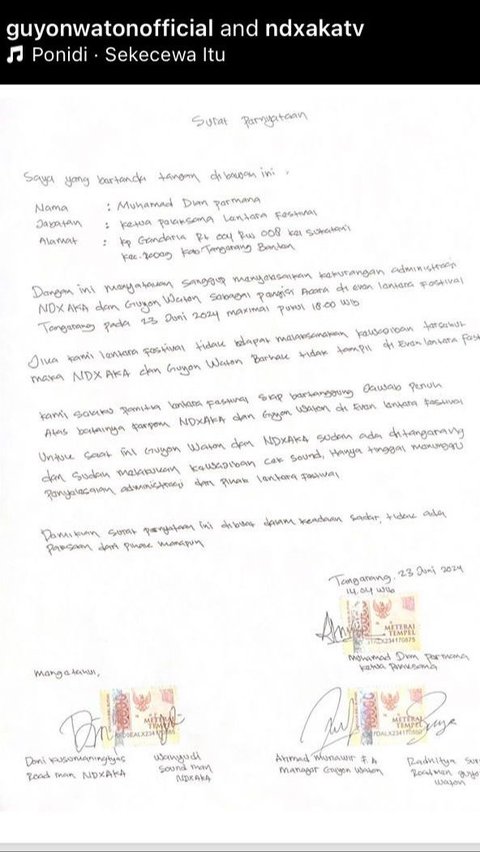 guyonwatonofficial and ndxakatv
Ponidi · Sekecewa Itu
Surat Parnyataan
Saya yang bartanda tangan dibawah ini :
Nama : Muhamad Dian Parmana
Jabatan : Ketua palaksana Lantara Festival
Alamat : kp Gandaria Rt 004 Rw 008 kel Sukatani
kec. Rajeg Kab Tangarang Bantan
Dangan ini manyatakan sanggup manyalasaikan kakurangan administrasi
NDXAKA dan Guyon Waton sabagai pangisi Acara di Evan lantara Fastival
Tangarang pada 23 Juni 2024 maximal pukul 18.00 WIB
Jika kami lantara fastival tidak dapat malaksanakan kawajiban tarsabut
maka NDXAKA dan Guyon Waton Barhak tidak tampil di Evan lantara fast
kami salaku panitia lantara Fastival siap bartanggung Jawab Panuh
Atas batalnya parpom NDXAKA dan Guyon Waton di Evan lantara Fastival
Untuk saat ini Guyon Waton dan NDXAKA sudah ada ditangarang
dan sudah malakukan kawajiban cak sound, Hanya tinggal manunggu
panyalasaian administrasi dari pihak lantara fastival
Damikian surat parnyataan ini dibuat dalam keadaan sadar, tidak ada
paksaan dari pihak manapun
Tangarang, 23 Juni 2024
14.04 WIB
METERAI
TEMPEL
Mohamad Dian Parmana
Ketua Pelaksana
Mangatahui,
10000
METERAI
TEMPEL
10000
METERAI
TEMPEL
Doni Kusumaningtyas
Road man NDXAKA
Wahyudi
Sound man
NDXAKA
Ahmad Munawir F.A
Manager Guyon Waton
Raditya Sur
Roadman guyo
Waton